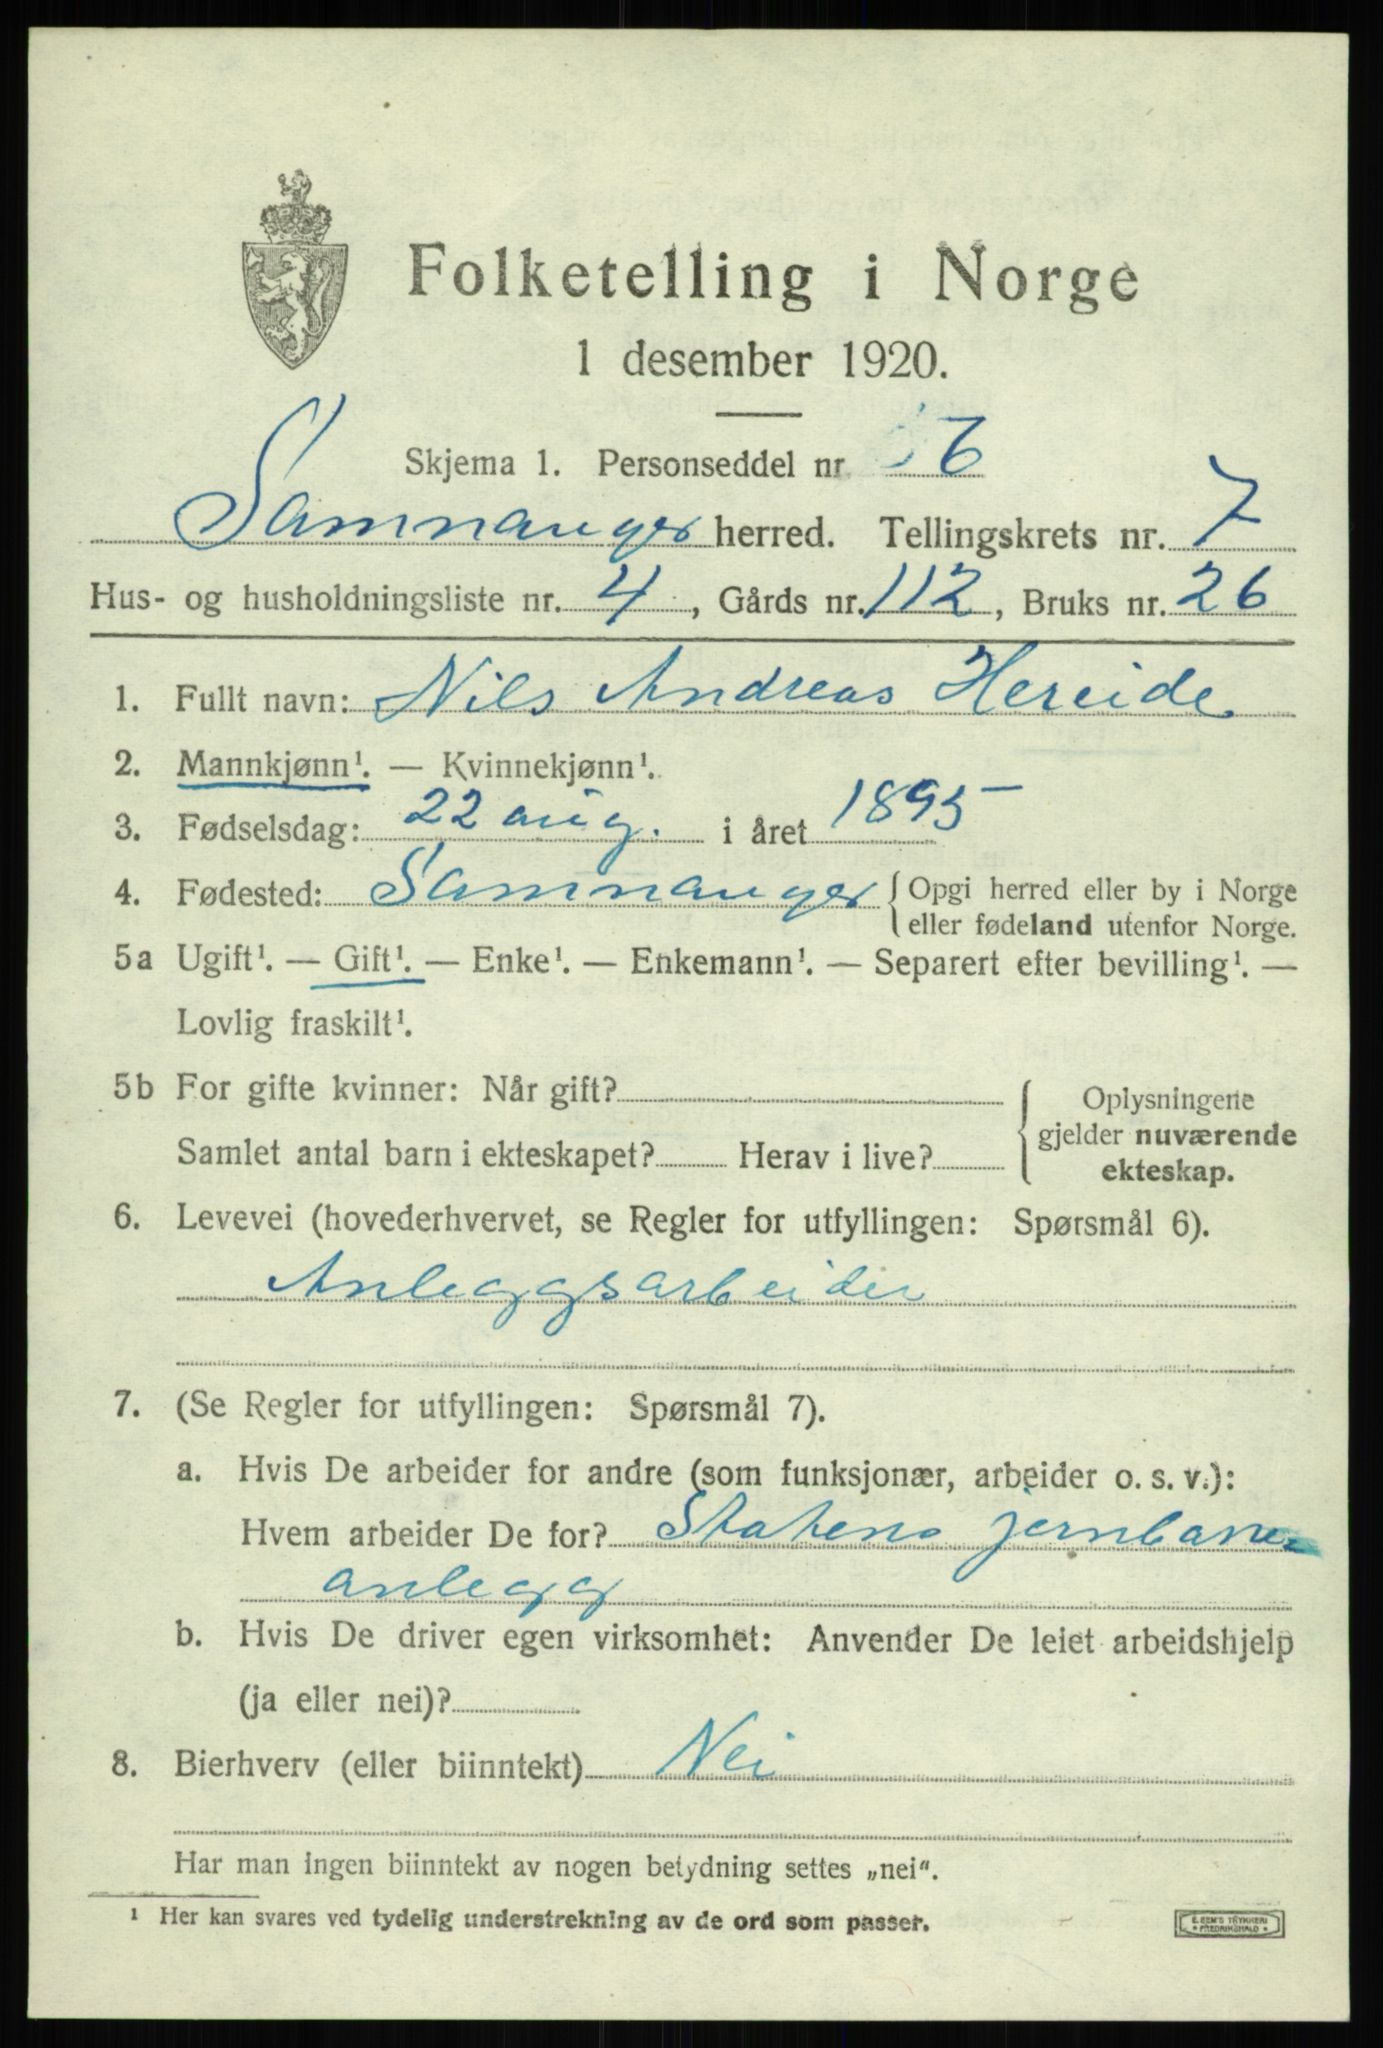 Folketelling i Norge
1 desember 1920.
Skjema 1. Personseddel nr 6
Samnanger herred. Tellingskrets nr. 7
Hus- og husholdningsliste nr. 4, Gårds nr. 112, Bruks nr. 26
1. Fullt navn: Nils Andreas Hereide
2. Mannkjønn¹. — Kvinnekjønn¹.
3. Fødselsdag: 22 aug. i året 1895
4. Fødested: Samnanger { Opgi herred eller by i Norge
eller fødeland utenfor Norge.
5a Ugift¹. — Gift¹. — Enke¹. — Enkemann¹. — Separert efter bevilling¹. —
Lovlig fraskilt¹.
5b For gifte kvinner: Når gift? { Oplysningene
gjelder nuværende
Samlet antal barn i ekteskapet? Herav i live?
ekteskap.
6. Levevei (hovederhvervet, se Regler for utfyllingen: Spørsmål 6).
Anleggsarbeider
7. (Se Regler for utfyllingen: Spørsmål 7).
a. Hvis De arbeider for andre (som funksjonær, arbeider o. s. v.):
Hvem arbeider De for? Statens jernbane-
anlegg
b. Hvis De driver egen virksomhet: Anvender De leiet arbeidshjelp
(ja eller nei)?
8. Bierhverv (eller biinntekt) Nei
Har man ingen biinntekt av nogen betydning settes „nei“.
¹ Her kan svares ved tydelig understrekning av de ord som passer.
E. SEM'S TRYKKERI
FREDRIKSHALD